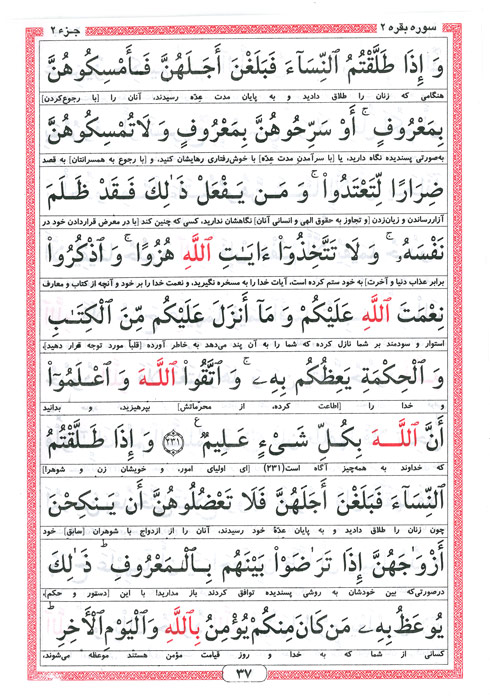 سوره بقره ۲
جزء ۲
وَ إِذَا طَلَّقْتُمُ ٱلنِّسَآءَ فَبَلَغْنَ أَجَلَهُنَّ فَأَمْسِكُوهُنَّ
هنگامی که زنان را طلاق دادید و به پایان مدت عِدّه رسیدند، آنان را [با رجوع‌کردن]
بِمَعْرُوفٍ ۚ أَوْ سَرِّحُوهُنَّ بِمَعْرُوفٍ وَ لَاتُمْسِكُوهُنَّ
به‌صورتی پسندیده نگاه دارید، یا [با سرآمدن مدت عِدّه] با خوش‌رفتاری رهایشان کنید، و [با رجوع به همسرانتان] به قصد
ضِرَارًا لِّتَعْتَدُوا۟ ۚ وَ مَن يَفْعَلْ ذَٰلِكَ فَقَدْ ظَلَمَ
آزاررساندن و زیان‌زدن [و تجاوز به حقوق الهی و انسانی آنان] نگاهشان ندارید، کسی که چنین کند [با در معرض قراردادن خود در
نَفْسَهُۥ ۚ وَ لَا تَتَّخِذُوٓا۟ ءَايَٰتِ ٱللَّهِ هُزُوًا ۚ وَ ٱذْكُرُوا۟
برابر عذاب دنیا و آخرت] به خود ستم کرده است، آیات خدا را به مسخره نگیرید، و نعمت خدا را بر خود و آنچه از کتاب و معارف
نِعْمَتَ ٱللَّهِ عَلَيْكُمْ وَ مَآ أَنزَلَ عَلَيْكُم مِّنَ ٱلْكِتَٰبِ
استوار و سودمند بر شما نازل کرده که شما را به آن پند می‌دهد به خاطر آورده [قلباً مورد توجه قرار دهید]،
وَ ٱلْحِكْمَةِ يَعِظُكُم بِهِۦ ۚ وَ ٱتَّقُوا۟ ٱللَّهَ وَ ٱعْلَمُوٓا۟
و خدا را [اطاعت کرده، از محرماتش] بپرهیزید، و بدانید
أَنَّ ٱللَّهَ بِكُلِّ شَىْءٍ عَلِيمٌ ۝۲۳۱ ع وَ إِذَا طَلَّقْتُمُ
که خداوند به همه‌چیز آگاه است(۲۳۱) [ای اولیای امور، و خویشان زن و شوهر!]
ٱلنِّسَآءَ فَبَلَغْنَ أَجَلَهُنَّ فَلَا تَعْضُلُوهُنَّ أَن يَنكِحْنَ
چون زنان را طلاق دادید و به پایان عدّهٔ خود رسیدند، آنان را از ازدواج با شوهران [سابق] خود
أَزْوَٰجَهُنَّ إِذَا تَرَٰضَوْا۟ بَيْنَهُم بِٱلْمَعْرُوفِ ۗ ذَٰلِكَ
درصورتی‌که بین خودشان به روشی پسندیده توافق کردند باز مدارید! با این [دستور و حکم]،
يُوعَظُ بِهِۦ مَن كَانَ مِنكُمْ يُؤْمِنُ بِٱللَّهِ وَٱلْيَوْمِ ٱلْأَخِرِ ۗ
کسانی از شما که به خدا و روز قیامت مؤمن هستند موعظه می‌شوند،
۳۷